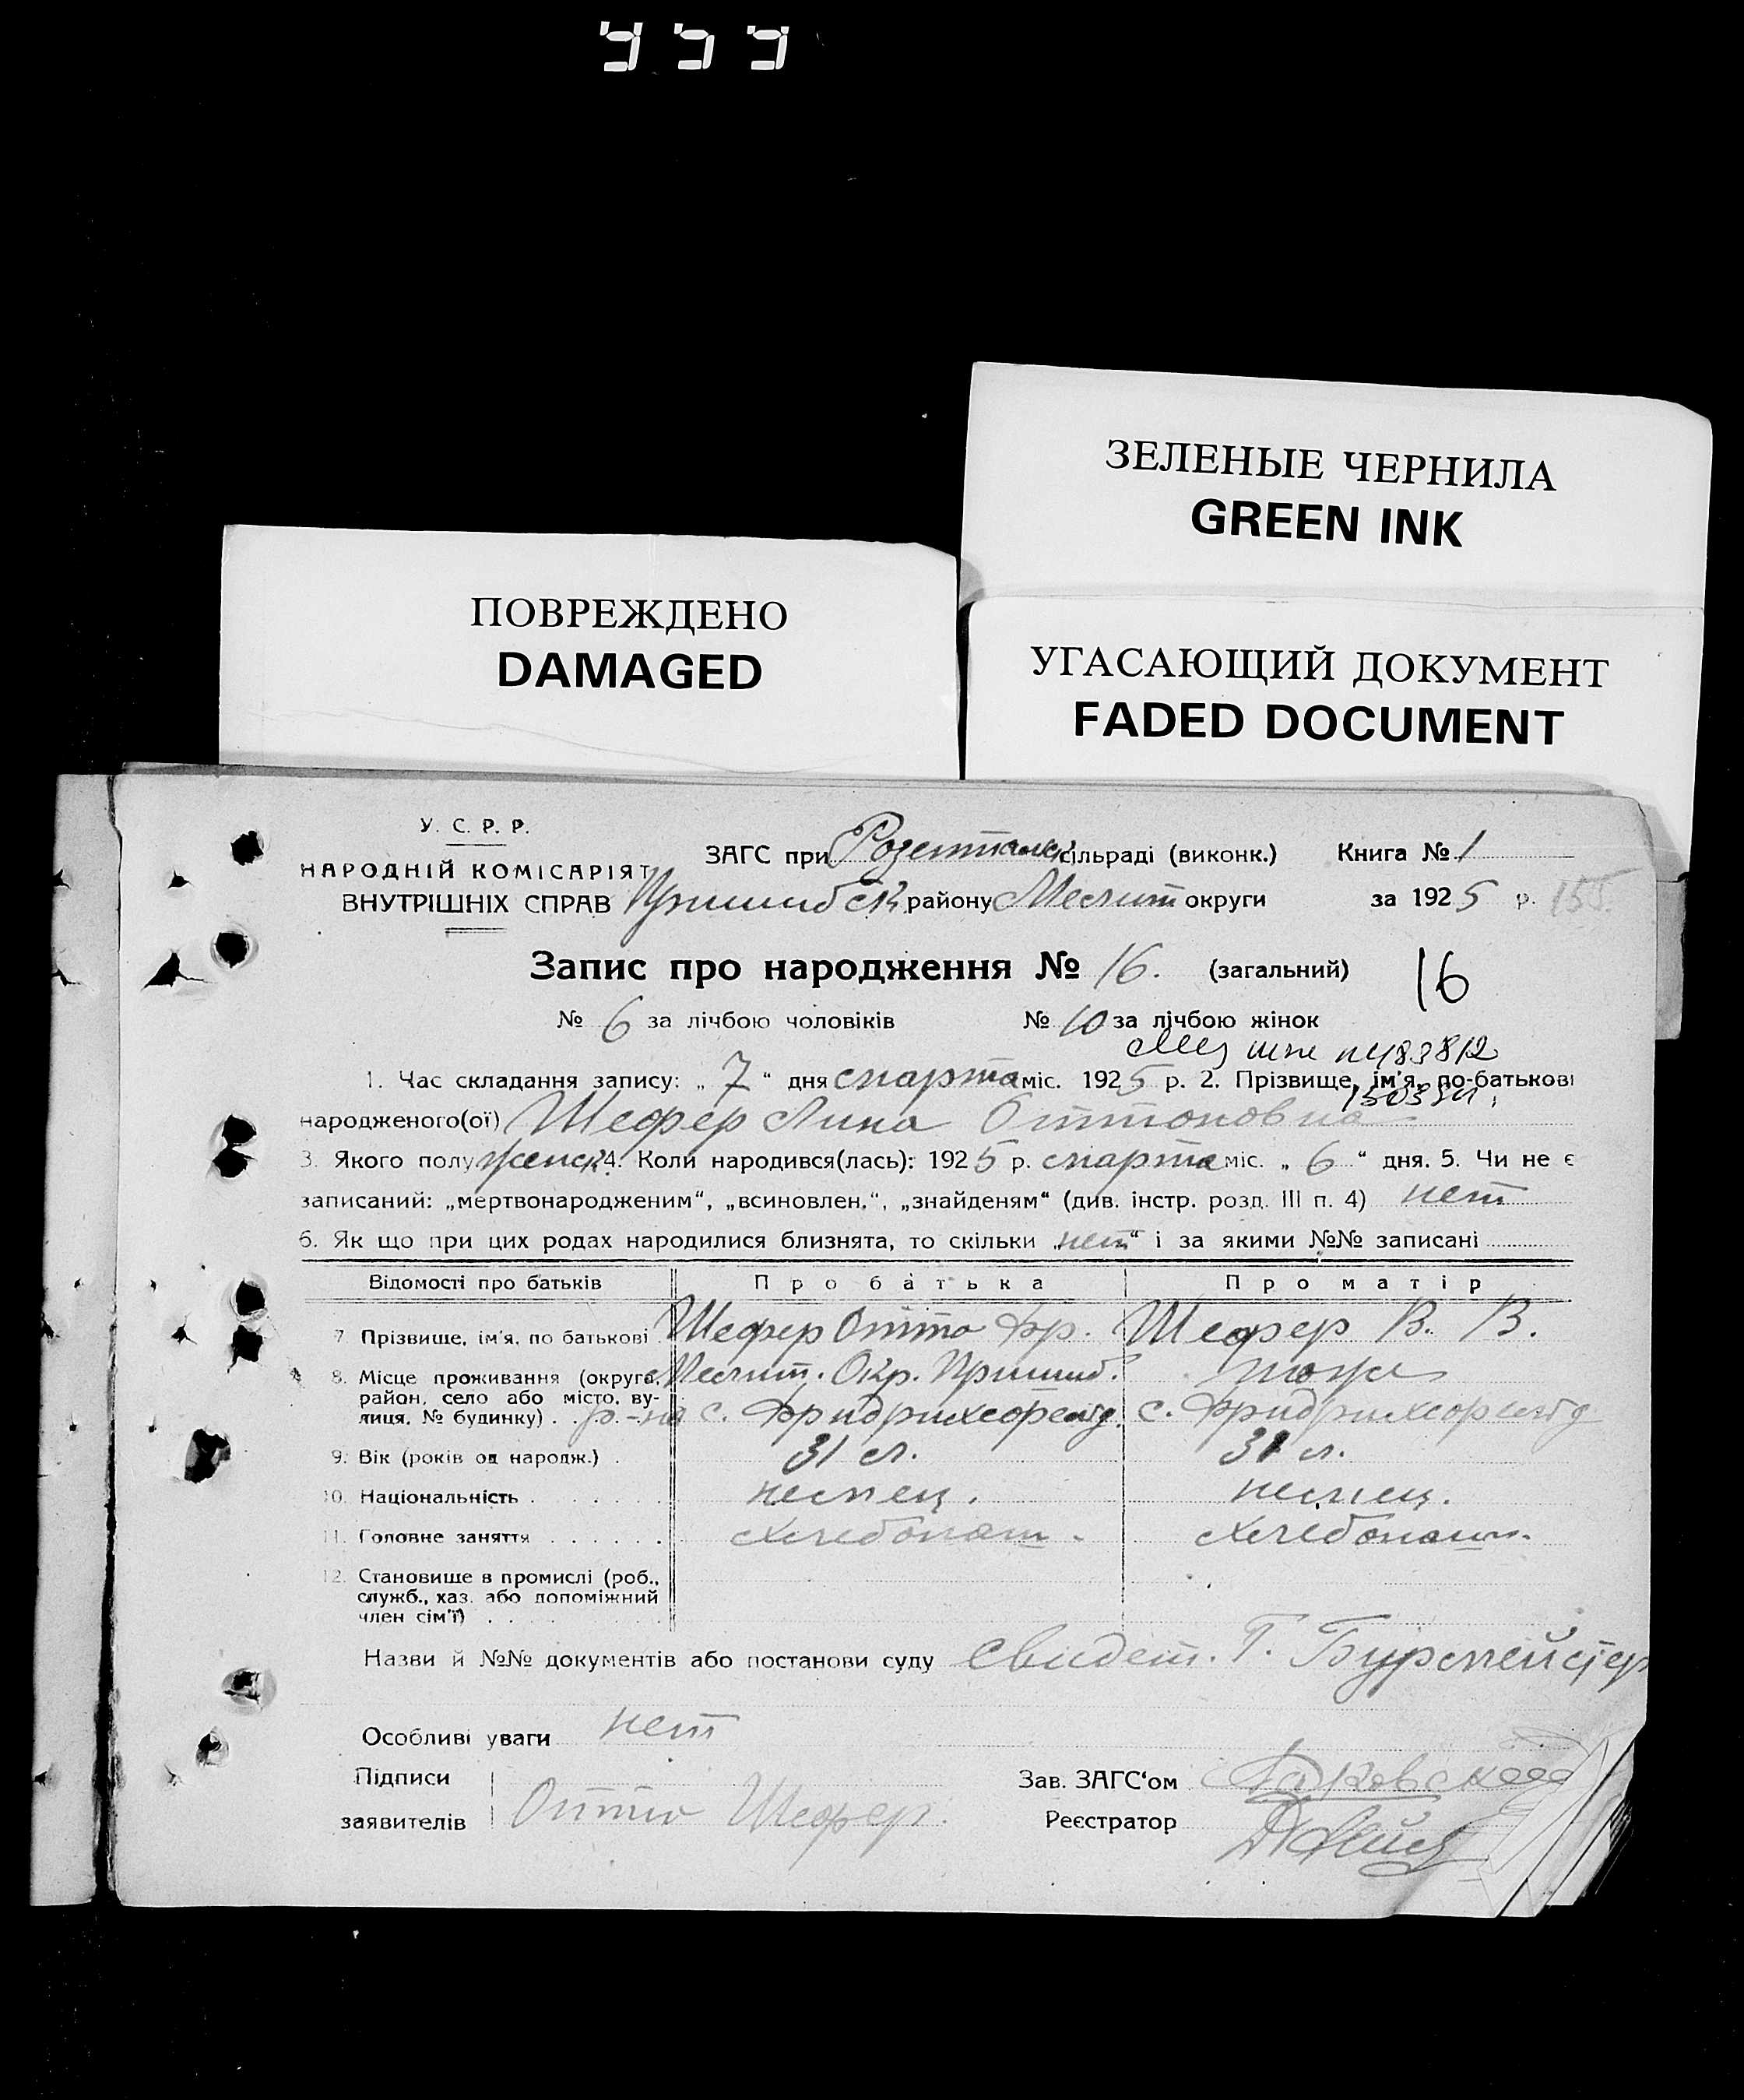 ЗЕЛЕНЫЕ ЧЕРНИЛА
GREEN INK
ПОВРЕЖДЕНО
DAMAGED
УГАСАЮЩИЙ ДОКУМЕНТ
FADED DOCUMENT
У. С. Р. Р.
НАРОДНІЙ КОМІСАРІЯТ
ВНУТРІШНІХ СПРАВ
ЗАГС при Розентальск сільраді (виконк.) Книга № 1
Пришибск. району Мелит округи за 1925 р. 155.
Запис про народження № 16. (загальний) 16
№ 6 за лічбою чоловіків № 10 за лічбою жінок
1. Час складання запису: „ 7 “ дня марта міс. 1925 р. 2. Прізвище, ім'я, по-батькові
народженого(ої) Шефер Лина Оттоновна
3. Якого полу женск 4. Коли народився(лась): 1925 р. марта міс. „ 6 “ дня. 5. Чи не є
записаний: „мертвонародженим“, „всиновлен.“, „знайденям“ (див. інстр. розд. III п. 4) нет
6. Як що при цих родах народилися близнята, то скільки „нет“ і за якими №№ записані
Відомості про батьків Про батька Про матір
7. Прізвище, ім'я, по батькові Шефер Отто Фр. Шефер В. В.
8. Місце проживання (округа, район, село або місто, вулиця, № будинку) Мелит. Окр. Пришиб. тоже
р-на с. Фридрихсфельд. с. Фридрихсфельд
9. Вік (років од народж.) 31 л. 31 л.
10. Національність немец. немец.
11. Головне заняття хлебопаш. хлебопаш.
12. Становище в промислі (роб., служб., хаз. або допоміжний член сім'ї)
Назви й №№ документів або постанови суду свидет. Г. Бурмейстер
Особливі уваги нет
Підписи заявителів Отто Шефер.
Зав. ЗАГС'ом
Реєстратор